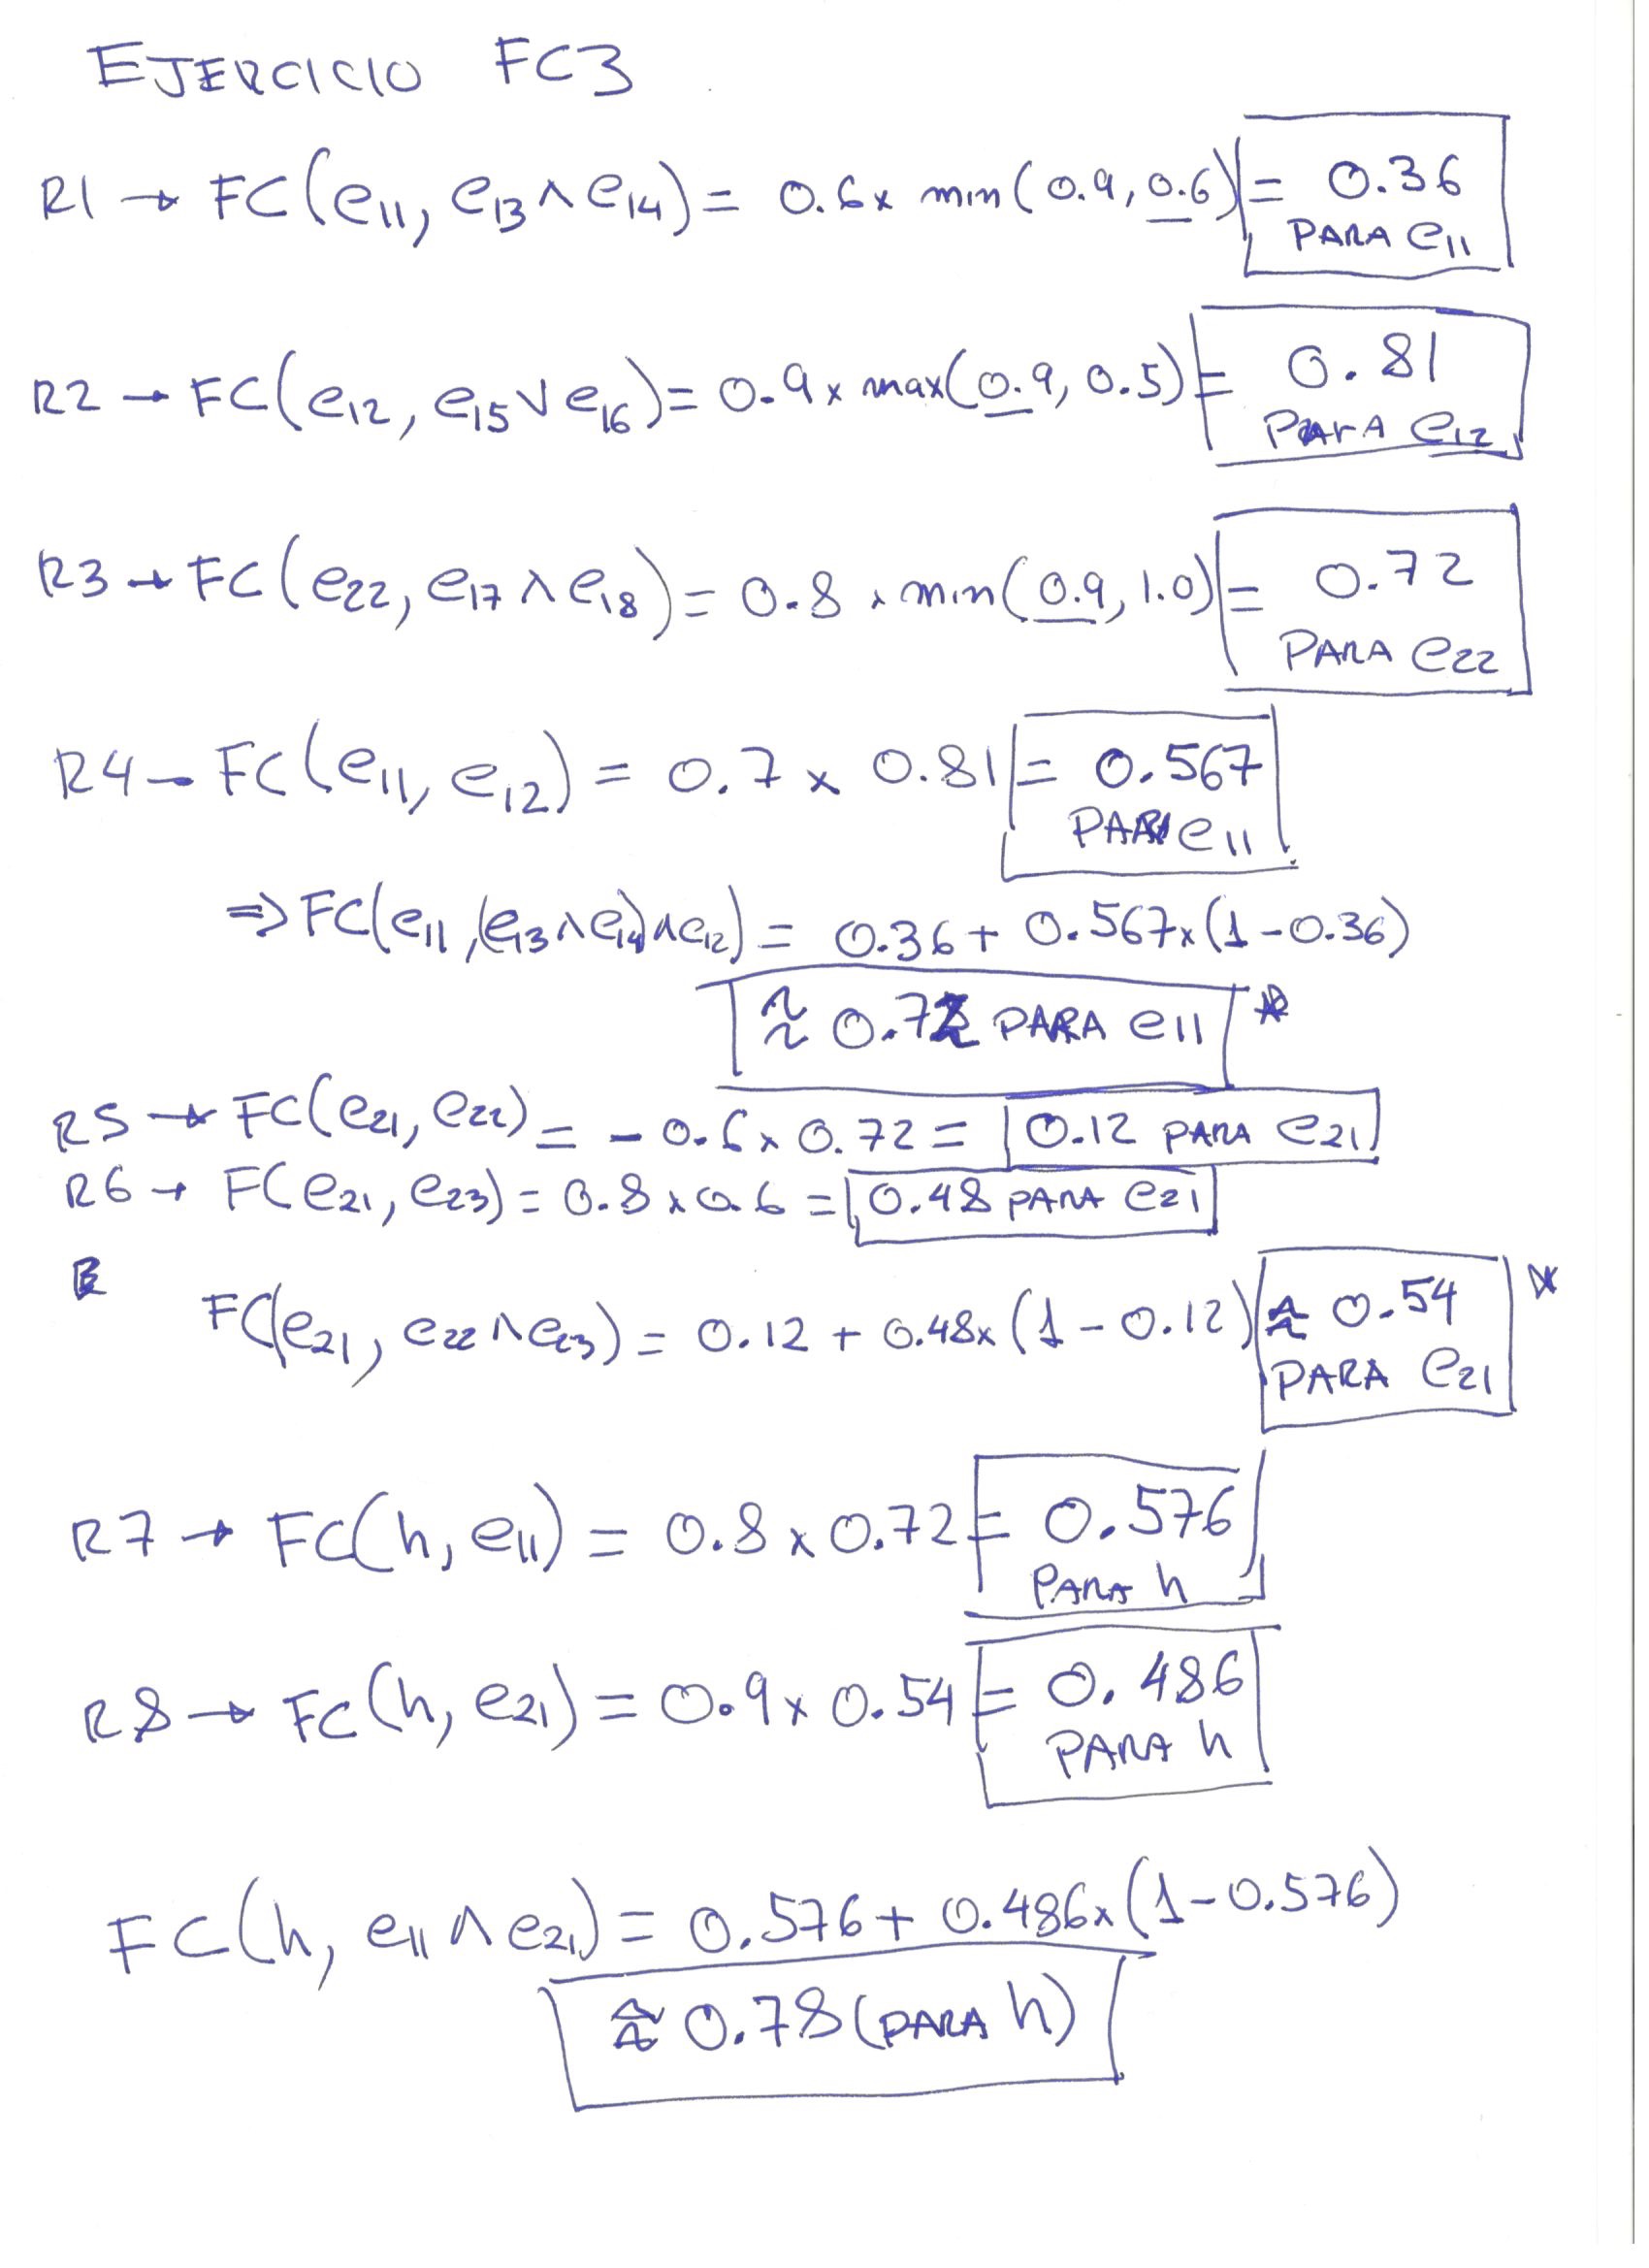 EJERCICIO FC3
R1 → FC(e11, e13 ∧ e14) = 0.6 x min(0.9, 0.6) = 0.36
PARA e11
R2 → FC(e12, e15 ∨ e16) = 0.9 x max(0.9, 0.5) = 0.81
PARA e12
R3 → FC(e22, e17 ∧ e18) = 0.8 x min(0.9, 1.0) = 0.72
PARA e22
R4 – FC(e11, e12) = 0.7 x 0.81 = 0.567
PARA e11
⇒ FC(e11, (e13 ∧ e14) ∧ e12) = 0.36 + 0.567 x (1 - 0.36)
≈ 0.72 PARA e11 *
R5 → FC(e21, e22) = - 0.6 x 0.72 = 0.12 PARA e21
R6 → F(e21, e23) = 0.8 x 0.6 = 0.48 PARA e21
FC(e21, e22 ∧ e23) = 0.12 + 0.48 x (1 - 0.12) ≈ 0.54 *
PARA e21
R7 → FC(h, e11) = 0.8 x 0.72 = 0.576
PARA h
R8 → FC(h, e21) = 0.9 x 0.54 = 0.486
PARA h
FC(h, e11 ∧ e21) = 0.576 + 0.486 x (1 - 0.576)
≈ 0.78 (PARA h)